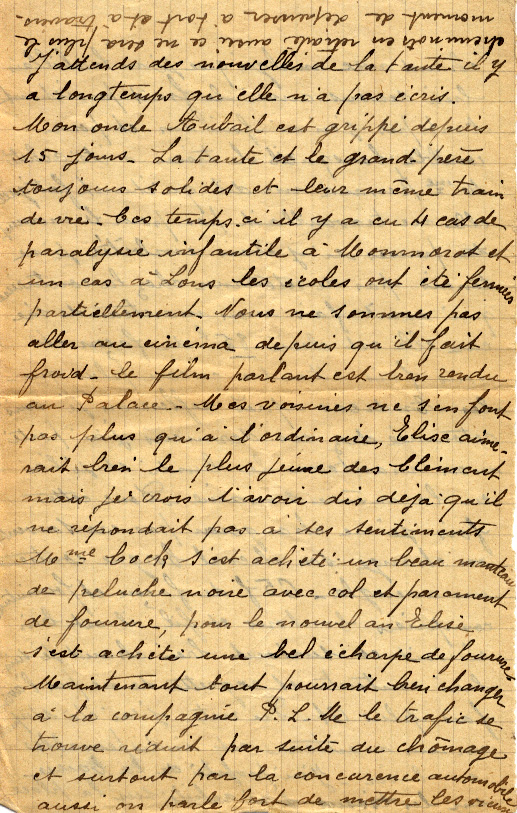 J'attends des nouvelles de la tante il y
a longtemps qu'elle n'a pas écris.
Mon oncle Aubail est grippé depuis
15 jours - La tante et le grand-père
toujours solides et leur même train
de vie - Ces temps-ci il y a eu 4 cas de
paralysie infantile à Monmorot et
un cas à Lons les écoles ont été fermées
partiellement. Nous ne sommes pas
aller au cinéma depuis qu'il fait
froid - le film parlant est bien rendu
au Palace - Mes voisines ne s'en font
pas plus qu'à l'ordinaire, Elise aime-
rait bien le plus jeune des Clément
mais je crois t'avoir dis déjà qu'il
ne répondait pas à ses sentiments
Mme Cock s'est achété un beau manteau
de peluche noire avec col et parement
de fourure, pour le nouvel an Elise
s'est achété une bel écharpe de fourure
Maintenant tout pourrait bien changer
à la compagnie P.L.M le trafic se
trouve réduit par suite du chômage
et surtout par la concurence automobile
aussi on parle fort de mettre les vieux
cheminots en retraite aussi ce ne sera plus le
moment de dépenser à tort et à travers.